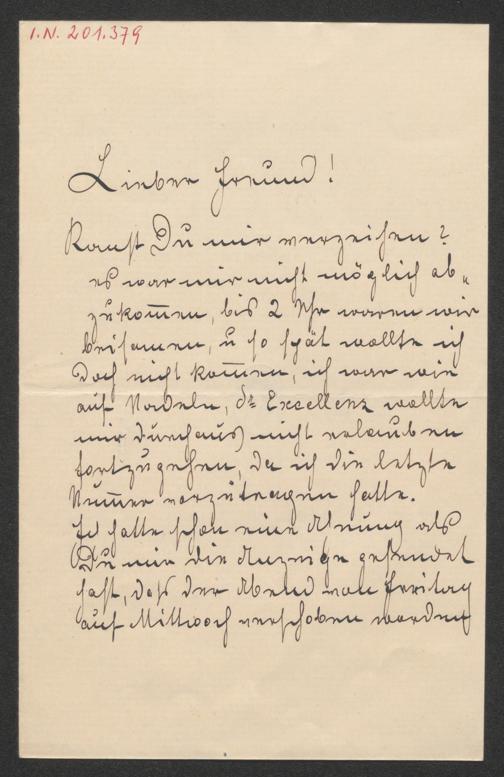 I.N. 201.379
Lieber Freund!
Kanst Du mir verzeihen?
es war mir nicht möglich ab„
zukom̅en, bis 2 Uhr waren wir
beisamen, u so spät wollte ich
Doch nicht kom̅en, ich war wie
auf Nadeln, dr Excellenz wollte
mir durchaus nicht erlauben
fortzugehen, da ich die letzte
Num̅er vorzutragen hatte.
Ich hatte schon eine Ahnung als
Du mir die Anzeige gesendet
hast, daß der Abend von Freitag
auf Mittwoch verschoben worden